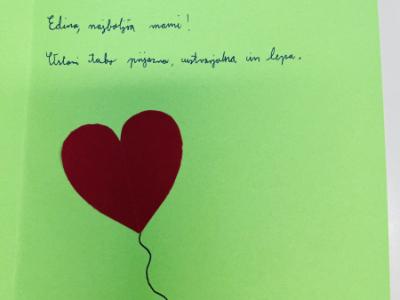 Edina, najboljša mami!
Ostani tako prijazna, ustvarjalna in lepa.